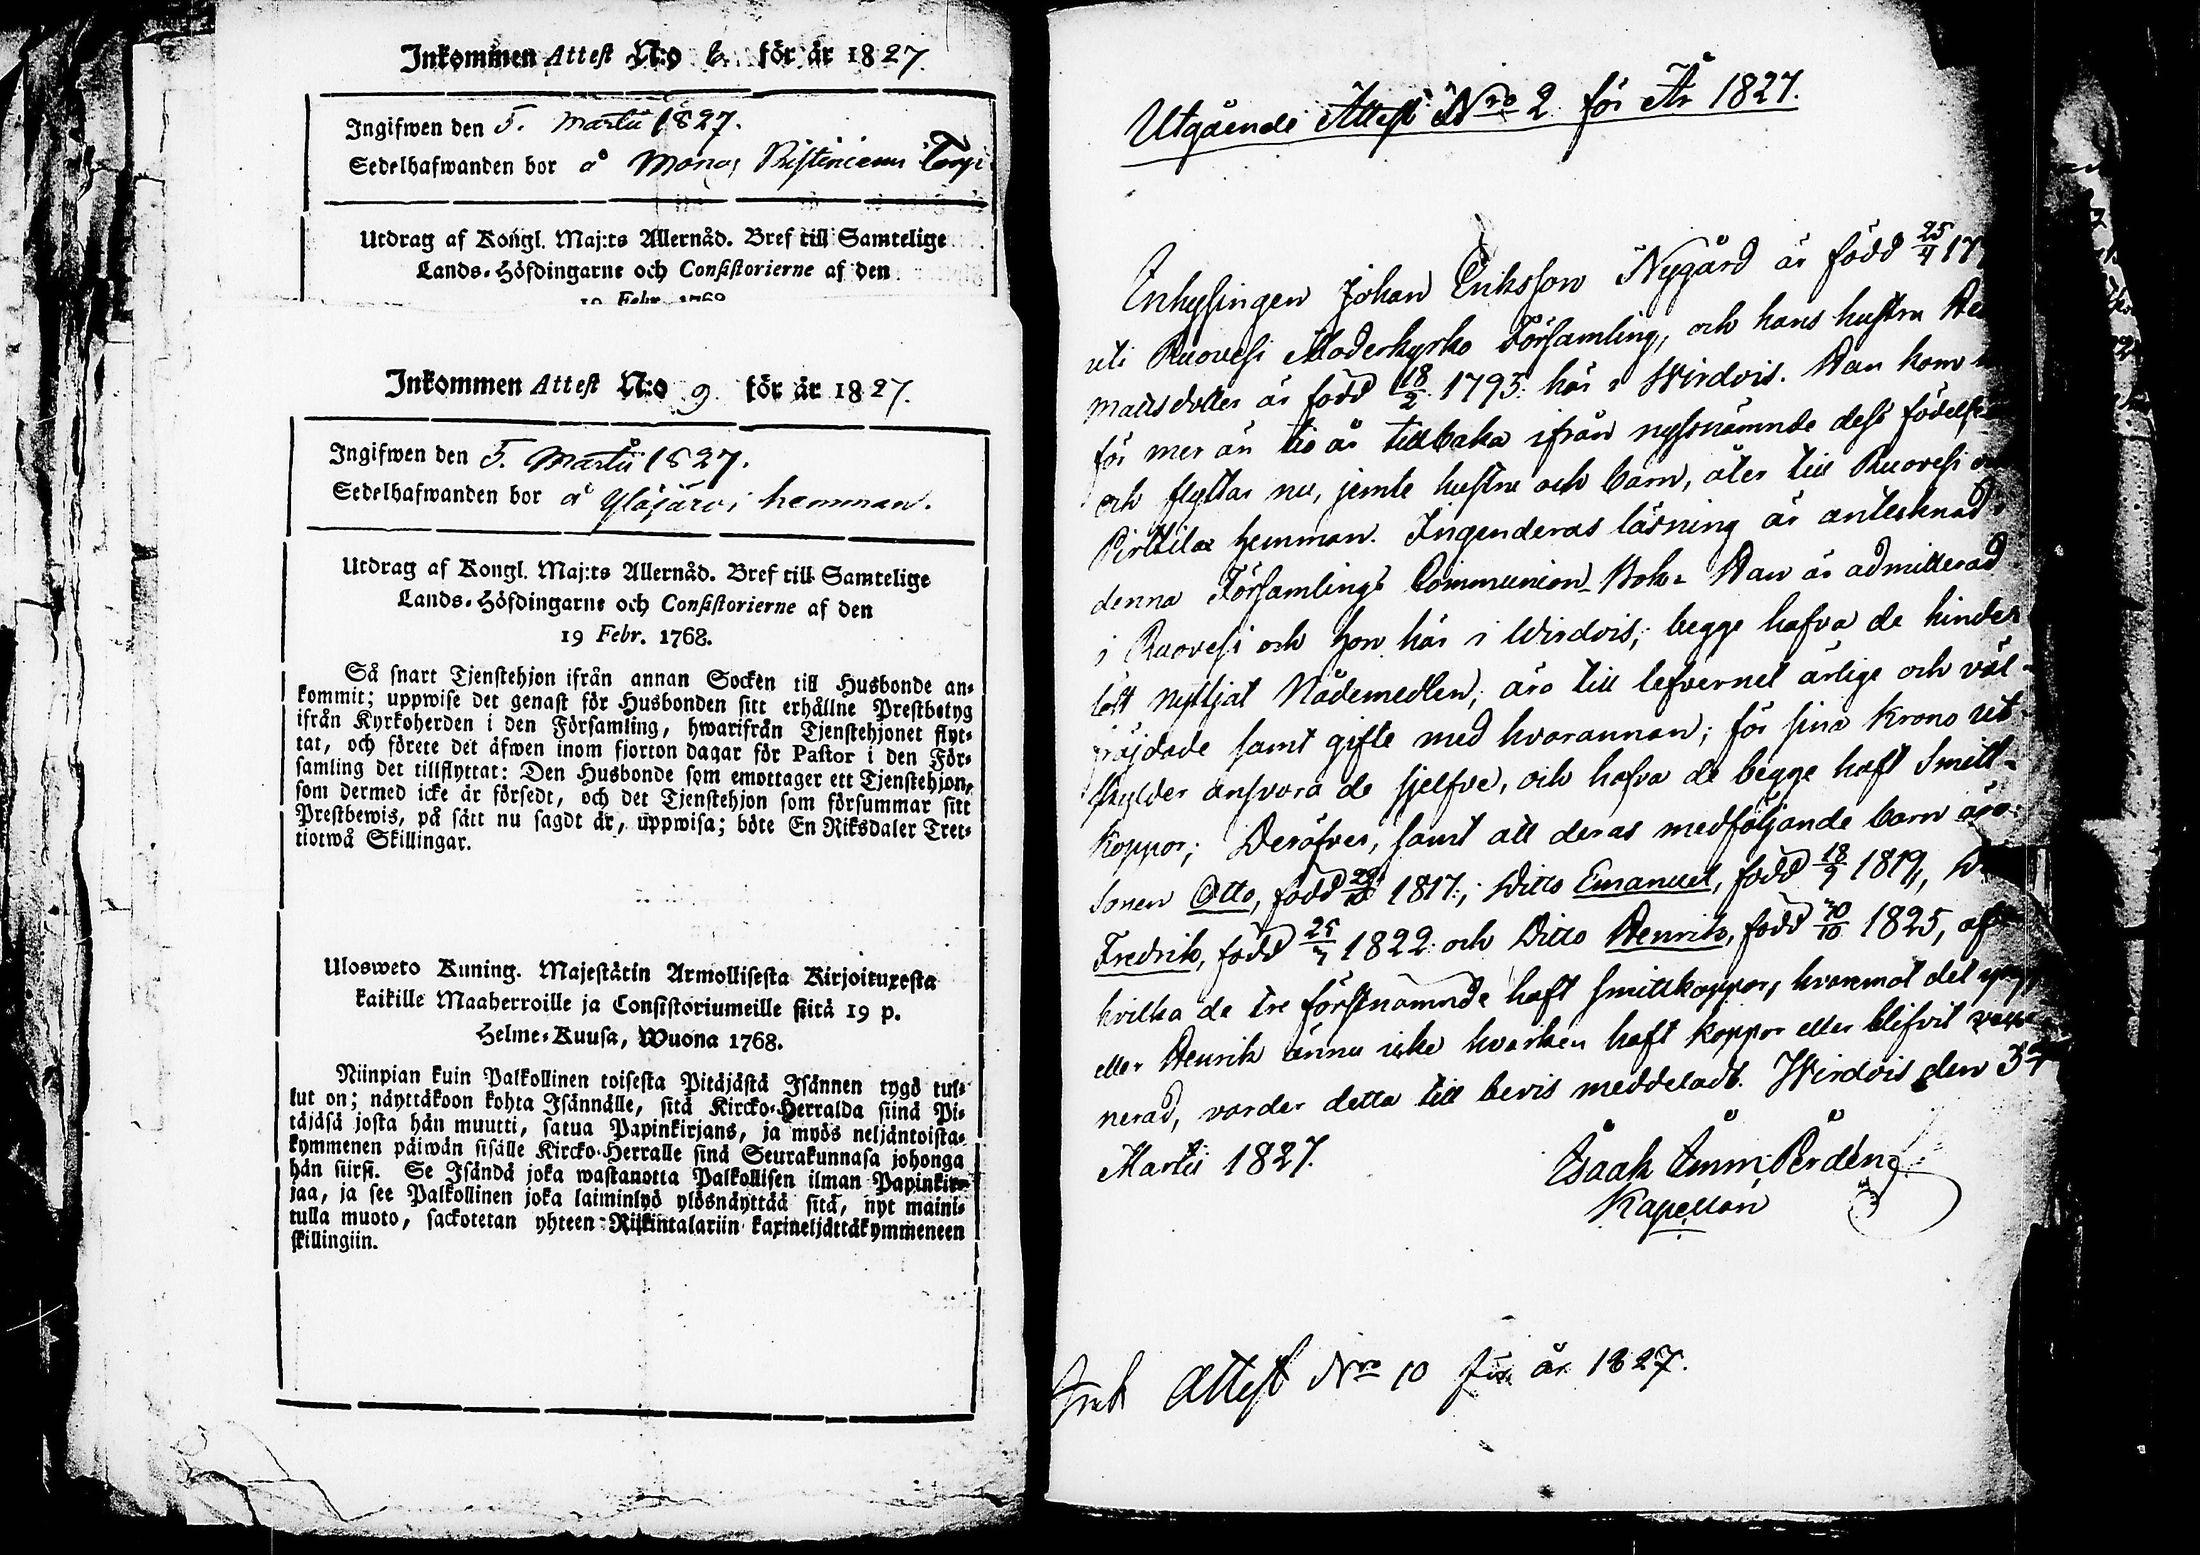 Inkommen Attest N:o 6. för år 1827.
Ingifwen den 5. Martii 1827.
Sedelhafwanden bor å Mona, Torp
Utdrag af Kongl. Maj:ts Allernåd. Bref till Samtelige
Lands-Höfdingarne och Consistorierne af den
19 Febr. 1768
Inkommen Attest N:o 9. för år 1827.
Ingifwen den 5. Martii 1827.
Sedelhafwanden bor å Yläjärvi hemman.
Utdrag af Kongl. Maj:ts Allernåd. Bref till Samtelige
Lands-Höfdingarne och Consistorierne af den
19 Febr. 1768.
Så snart Tjenstehjon ifrån annan Socken till Husbonde an-
kommit; uppwise det genast för Husbonden sitt erhållne Prestbetyg
ifrån Kyrkoherden i den Församling, hwarifrån Tjenstehjonet flyt-
tat, och förete det äfwen inom fjorton dagar för Pastor i den För-
samling det tillflyttat: Den Husbonde som emottager ett Tjenstehjon,
som dermed icke är försedt, och det Tjenstehjon som försummar sitt
Prestbewis, på sätt nu sagdt är, uppwisa; böte En Riksdaler Tret-
tiotwå Skillingar.
Ulosweto Kuning. Majestätin Armollisesta Kirjoituxesta
kaikille Maaherroille ja Consistoriumeille siitä 19 p.
Helme-Kuusa, Wuona 1768.
Niinpian kuin Palkollinen toisesta Pitäjästä Isännen tygö tul-
lut on; näyttäkoon kohta Isännälle, sitä Kircko-Herralda siinä Pi-
täjäsä josta hän muutti, satua Papinkirjans, ja myös neljäntoista-
kymmenen päiwän sisälle Kircko-Herralle sinä Seurakunnasa johonga
hän siirsi. Se Isändä joka wastanotta Palkollisen ilman Papinkir-
jaa, ja see Palkollinen joka laiminlyö ylösnäyttää sitä, nyt maini-
tulla muoto, sackotetan yhteen Riikintalariin kaxineljättäkymmeneen
skillingiin.
Utgående Attest Nro 2 för År 1827.
Inhysingen Johan Eriksson Nygård är född 25/4 17
uti Ruovesi Moderkyrko Församling, och hans hustru
Mattsdotter är född 18/2 1795 här i Wirdois. Han kom
för mer än tio år tillbaka ifrån nyssnämnde dess födelse
och flyttar nu, jemte hustru och barn, åter till Ruovesi
Pirttilä hemman. Ingenderas läsning är antecknad i
denna Församlings Communion-Bok. Han är admitterad
i Ruovesi och hon här i Wirdois; begge hafva de hinder-
löst nyttjat Nådemedlen, äro till lefvernet ärlige och väl-
fräjdade samt gifte med hvarannan; för sina Krono ut-
skylder ansvara de sjelfve, och hafva de begge haft Smitt-
koppor; Deröfver, samt att deras medföljande barn äro:
Sonen Otto, född 1817; Ditto Emanuel, född 18/9 1819,
Fredrik, född 25/7 1822 och Ditto Henrik, född 30/10 1825, af
hvilka de tre förstnämnde haft smittkoppor, hvaremot det
eller Henrik ännu icke hvarken haft koppor eller blifvit vacci-
nerad, varder detta till bevis meddeladt. Wirdois den 3
Martii 1827.
Isaak Perdén
Kapellan
Ink Attest Nro 10 för år 1827.